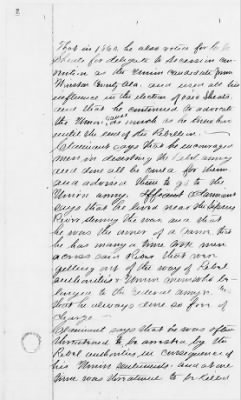 That in 1860. he also voted for C. C.
Sheats for delegate to Secession con-
vention as the Union candidate from
Winston County Ala. and used all his
influence in the election of said Sheats.
and that he continued to advocate
the Union cause as much as he
until the end of the Rebellion.
Claimant says that he encouraged
men in deserting the Rebel army
and done all he could for them
and advised them to go to the
Union army. Affiant claimant
says that he lived near the
River during the war and that
he was the owner of a and
he has many a time men
across said River that were
getting out of the way of Rebel
authorities & Union men who be-
longed to the Federal army &
that he always done so free of
charge
Claimant says that he was often
threatened to be arrested by the
Rebel authorities in consequence of
his Union sentiments. and at one
time was threatened to be killed